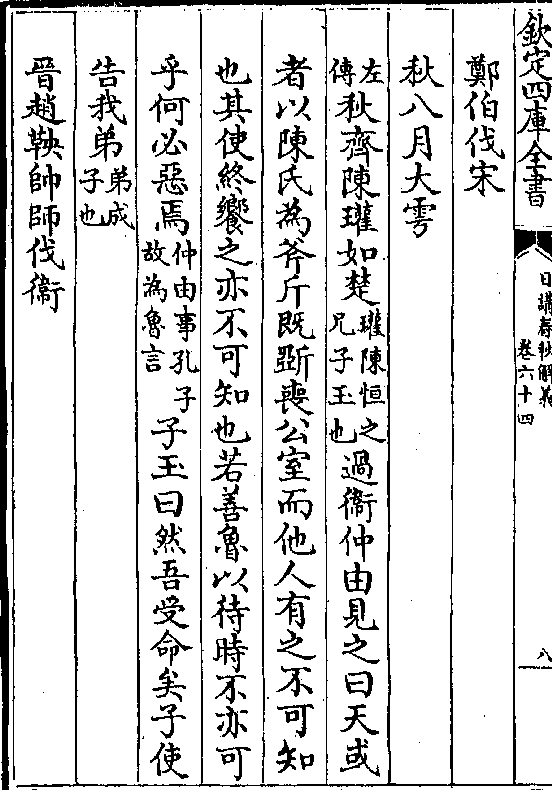 欽定四庫全書
日講春秋解義
卷六十四
八
鄭伯伐宋
秋八月大雩
左傳秋齊陳瓘如楚瓘陳恒之兄子玉也過衞仲由見之曰天或
者以陳氏為斧斤既斲喪公室而他人有之不可知
也其使終饗之亦不可知也若善魯以待時不亦可
乎何必惡焉仲由事孔子故為魯言子玉曰然吾受命矣子使
告我弟弟成子也
晉趙鞅帥師伐衞